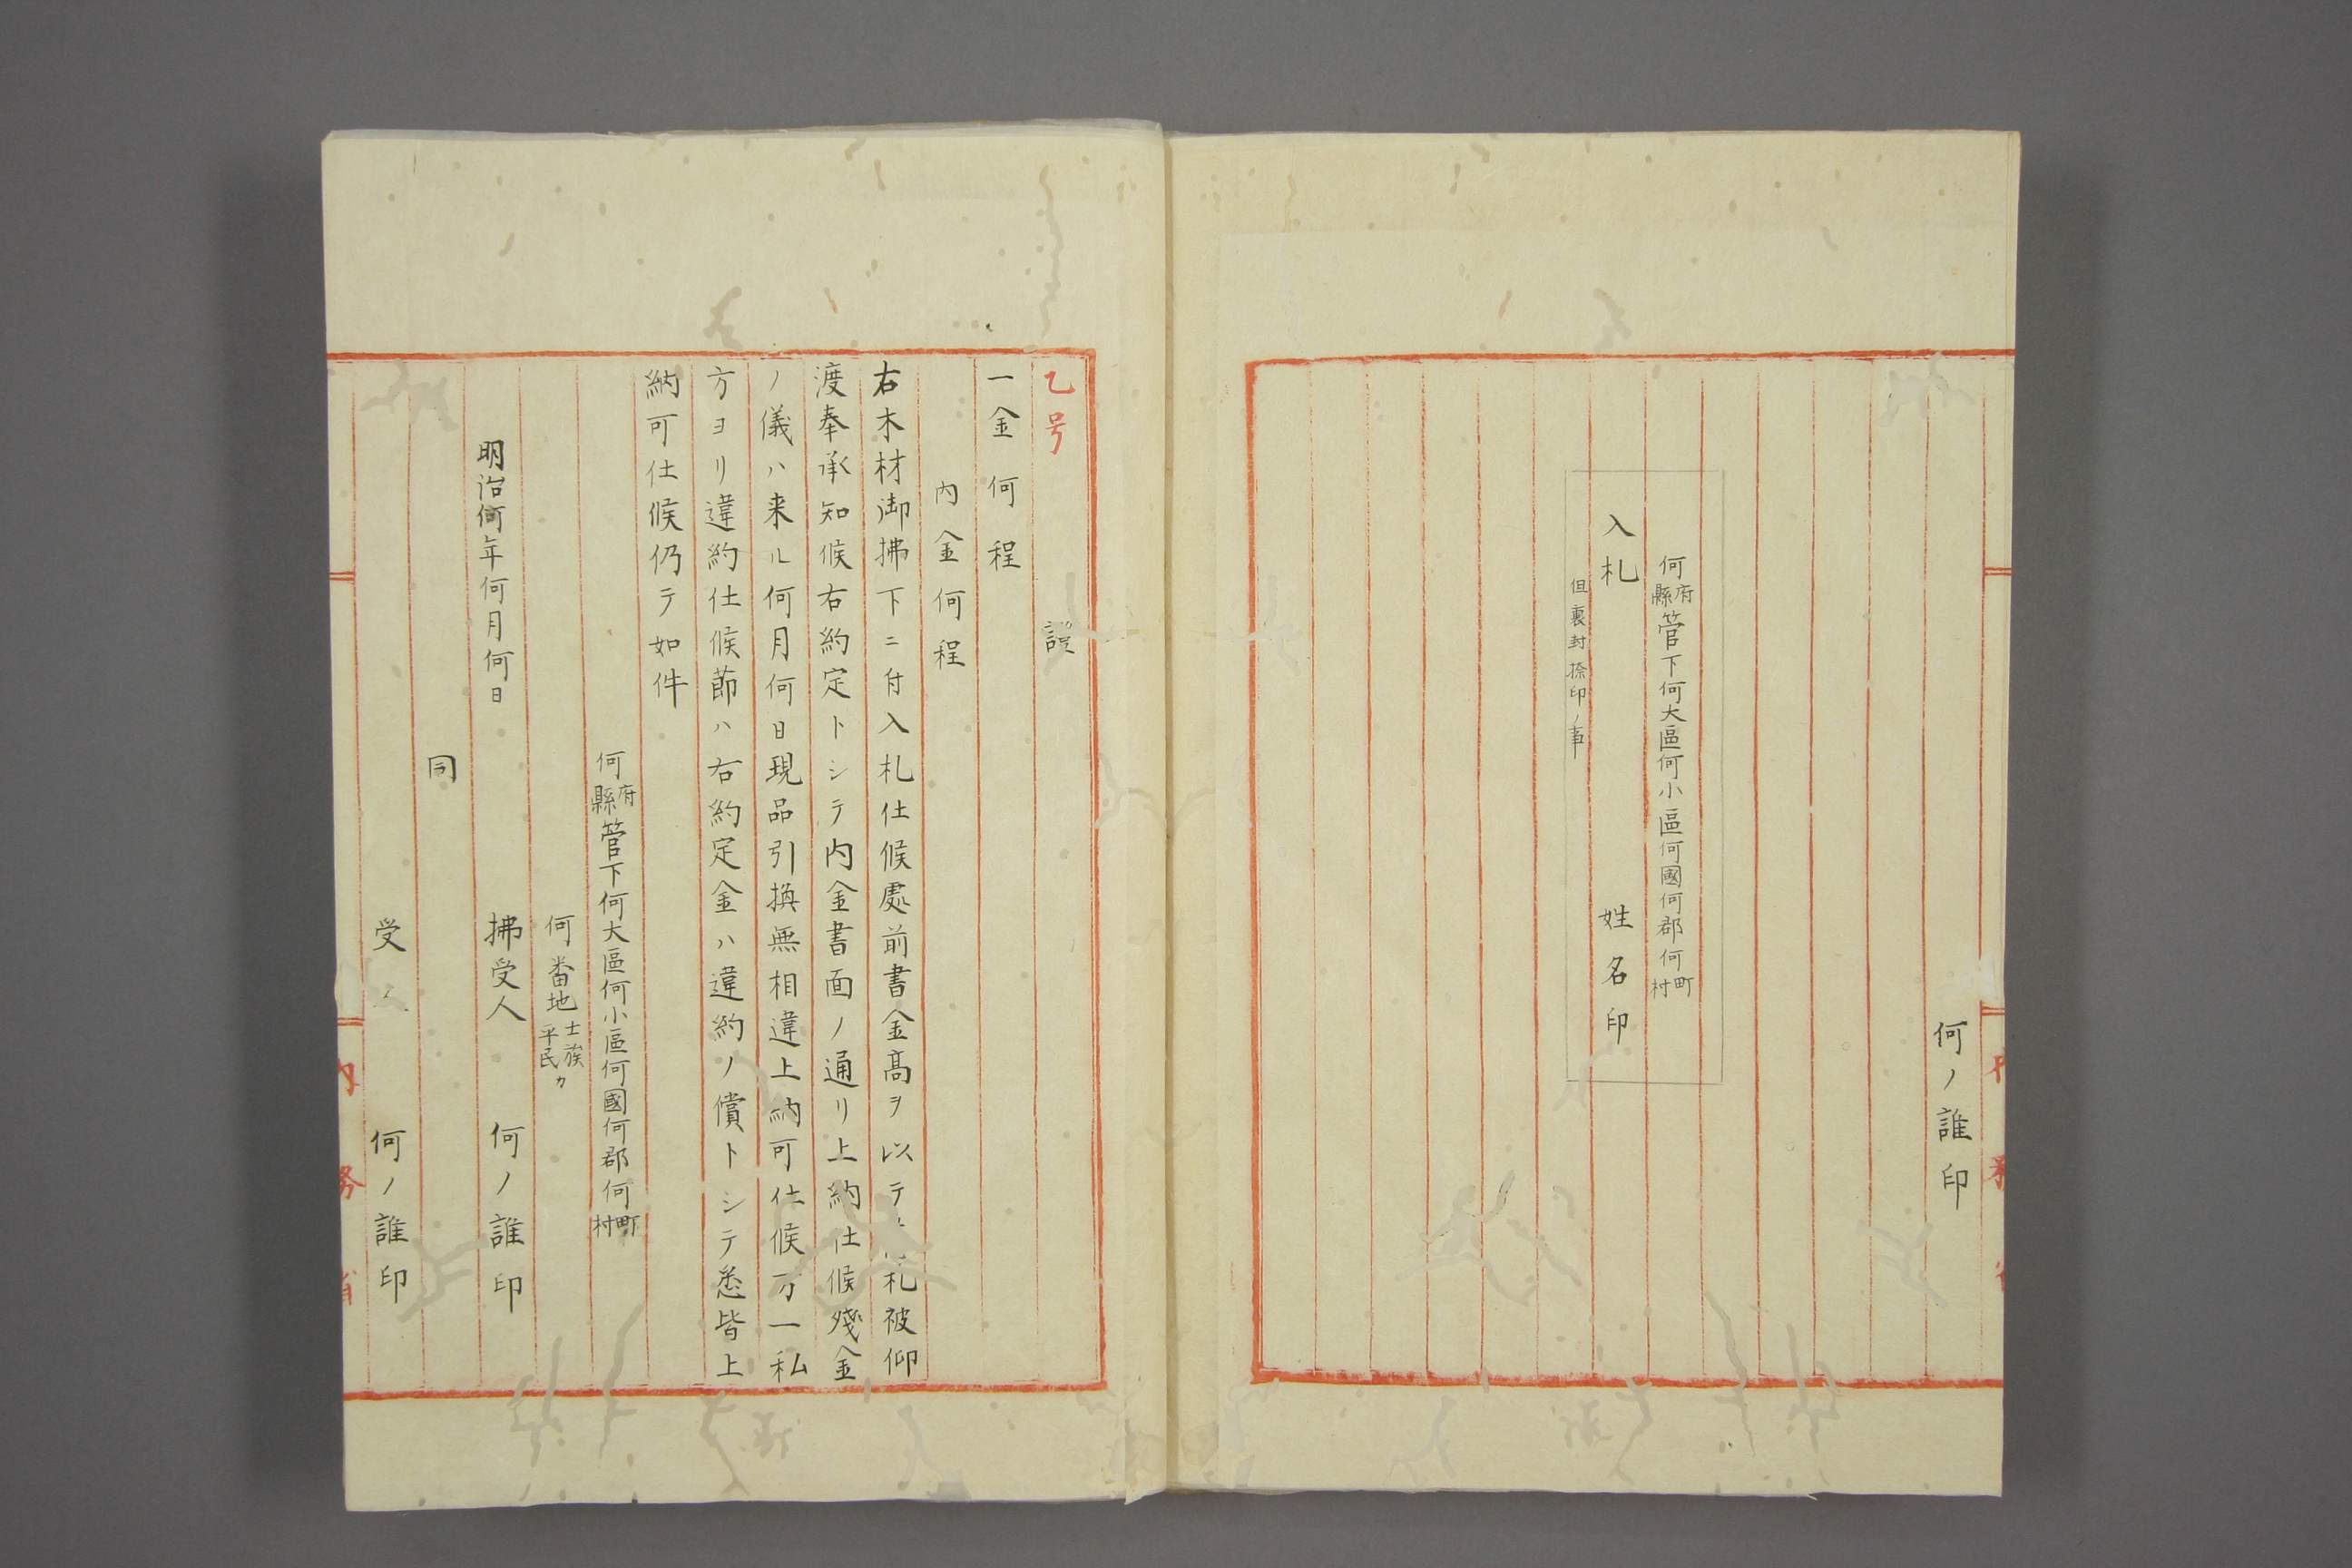 何ノ誰印
何府縣管下何大區何小區何國何郡何町村
入札 姓名印
但裏封捺印ノ事
乙号
證
一金何程
内金何程
右木材御拂下ニ付入札仕候處前書金高ヲ以テ札被仰
渡奉承知候右約定トシテ内金書面ノ通リ上納仕候殘金
ノ儀ハ来ル何月何日現品引換無相違上納可仕候万一私
方ヨリ違約仕候節ハ右約定金ハ違約ノ償トシテ悉皆上
納可仕候仍テ如件
何府縣管下何大區何小區何國何郡何町村
何番地士族平民カ
明治何年何月何日 拂受人 何ノ誰印
同
受人 何ノ誰印
内務省